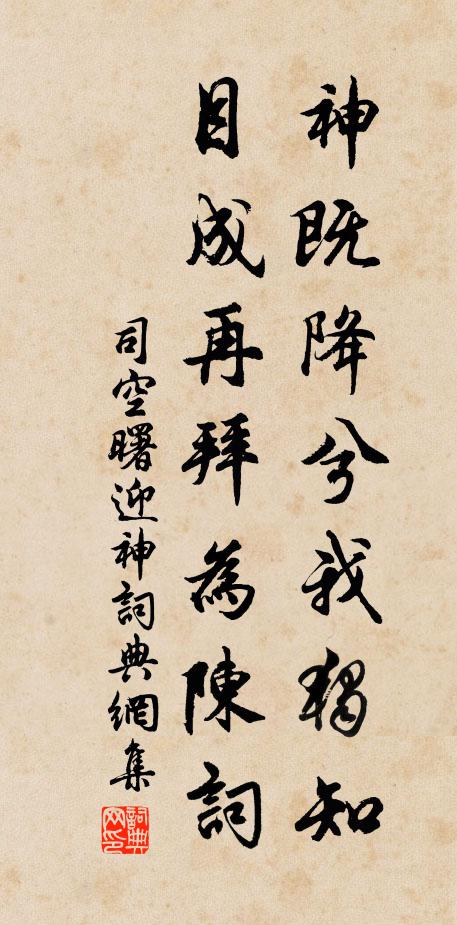 神既降兮我獨知
目成再拜為陳詞
司空曙迎神詞典網集
詞典网印